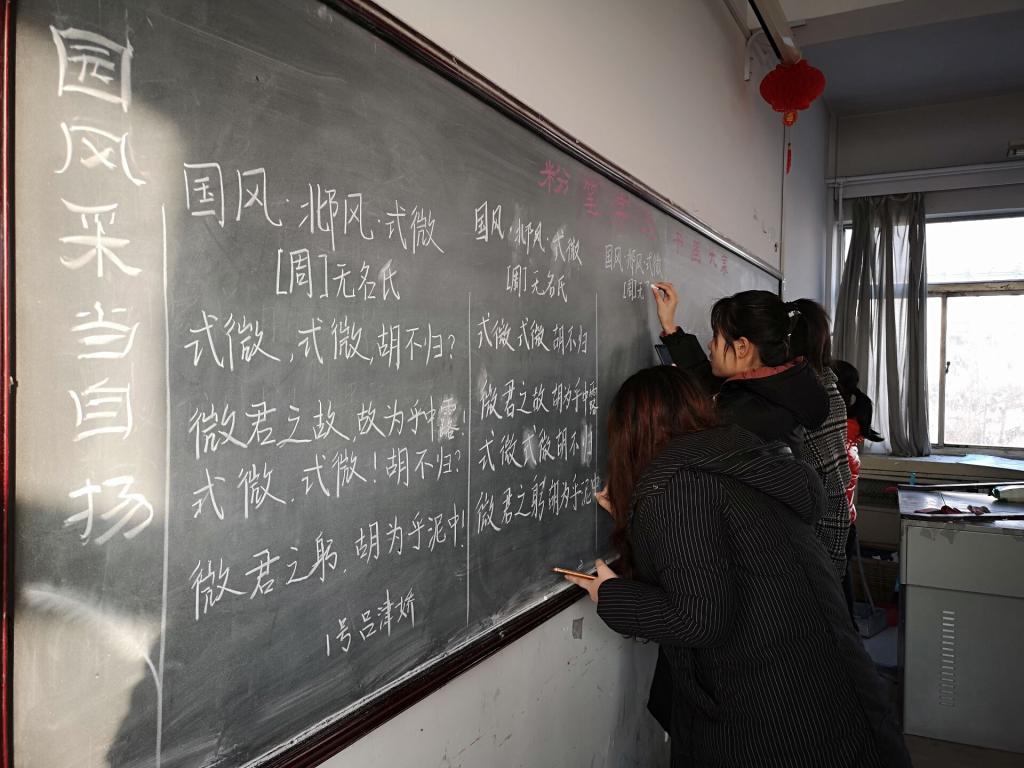 园风采当自扬
粉笔
国风·邶风·式微
[周]无名氏
式微,式微,胡不归?
微君之故,故为乎中露!
式微,式微!胡不归?
微君之躬,胡为乎泥中!
1号吕津娇
国风·邶风·式微
[周]无名氏
式微,式微,胡不归
微君之故,胡为乎中露
式微式微胡不归
微君之躬,胡为乎泥中
国风·邶风·式微
[周]无